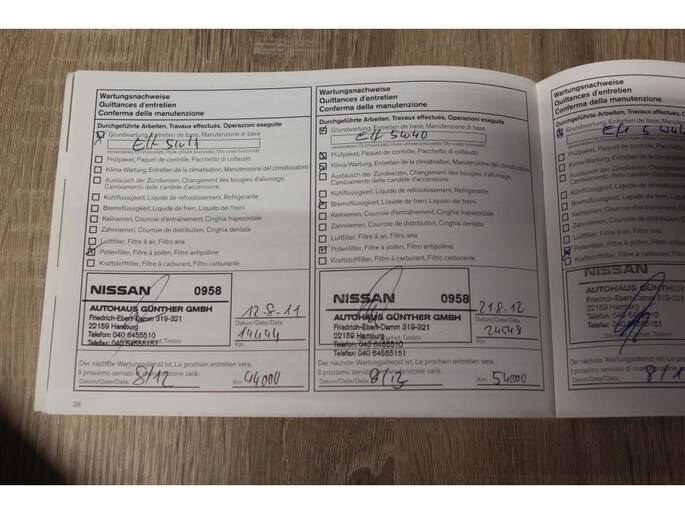 Wartungsnachweise
Quittances d'entretien
Conferma della manutenzione
Durchgeführte Arbeiten, Travaux effectués, Operazioni eseguite
Grundwartung, Entretien de base, Manutenzione di base
Elf
Prüfpaket, Paquet de contrôle, Pacchetto di collaudo
Klima-Wartung, Entretien de la climatisation, Manutenzione del climatizzatore
Austausch der Zündkerzen, Changement des bougies d'allumage,
Cambiamento delle candele d'accensione
Kühlflüssigkeit, Liquide de refroidissement, Refrigerante
Bremsflüssigkeit, Liquide de frein, Liquido dei freni
Keilriemen, Courroie d'entraînement, Cinghia trapezoidale
Zahnriemen, Courroie de distribution, Cinghia dentata
Luftfilter, Filtre à air, Filtro aria
Pollenfilter, Filtre à pollen, Filtro antipolline
Kraftstofffilter, Filtre à carburant, Filtro carburante
NISSAN 0958
AUTOHAUS GÜNTHER GMBH
Friedrich-Ebert-Damm 319-321
22159 Hamburg
Telefon: 040 6455510
Telefax: 040 64555151
12-8-11
Datum/Date/Data
14444
Km
Der nächste Wartungsdienst ist, Le prochain entretien sera,
Il prossimo servizio di manutenzione sarà:
Datum/Date/Data: 8/12 Km: 44000
38
Wartungsnachweise
Quittances d'entretien
Conferma della manutenzione
Durchgeführte Arbeiten, Travaux effectués, Operazioni eseguite
Grundwartung, Entretien de base, Manutenzione di base
Elf 5W40
Prüfpaket, Paquet de contrôle, Pacchetto di collaudo
Klima-Wartung, Entretien de la climatisation, Manutenzione del climatizzatore
Austausch der Zündkerzen, Changement des bougies d'allumage,
Cambiamento delle candele d'accensione
Kühlflüssigkeit, Liquide de refroidissement, Refrigerante
Bremsflüssigkeit, Liquide de frein, Liquido dei freni
Keilriemen, Courroie d'entraînement, Cinghia trapezoidale
Zahnriemen, Courroie de distribution, Cinghia dentata
Luftfilter, Filtre à air, Filtro aria
Pollenfilter, Filtre à pollen, Filtro antipolline
Kraftstofffilter, Filtre à carburant, Filtro carburante
NISSAN 0958
AUTOHAUS GÜNTHER GMBH
Friedrich-Ebert-Damm 319-321
22159 Hamburg
Telefon: 040 6455510
Telefax: 040 64555151
21.8.12
Datum/Date/Data
24548
Km
Der nächste Wartungsdienst ist, Le prochain entretien sera,
Il prossimo servizio di manutenzione sarà:
Datum/Date/Data: 8/13 Km: 54000
Wartungsnachweise
Quittances d'entretien
Conferma della manutenzione
Durchgeführte Arbeiten, Travaux
Grundwartung, Entretien de
Prüfpaket, Paquet de contrôle,
Klima-Wartung, Entretien de la
Austausch der Zündkerzen,
Cambiamento delle candele
Kühlflüssigkeit, Liquide de
Bremsflüssigkeit, Liquide de
Keilriemen, Courroie
Zahnriemen, Courroie de
Luftfilter, Filtre à air, Filtro
Pollenfilter, Filtre à pollen,
Kraftstofffilter, Filtre à
NISSAN
AUTOHAUS
Friedrich-Ebert-Damm
22159 Hamburg
Der nächste Wartungsdienst
Il prossimo servizio di
Datum/Date/Data: